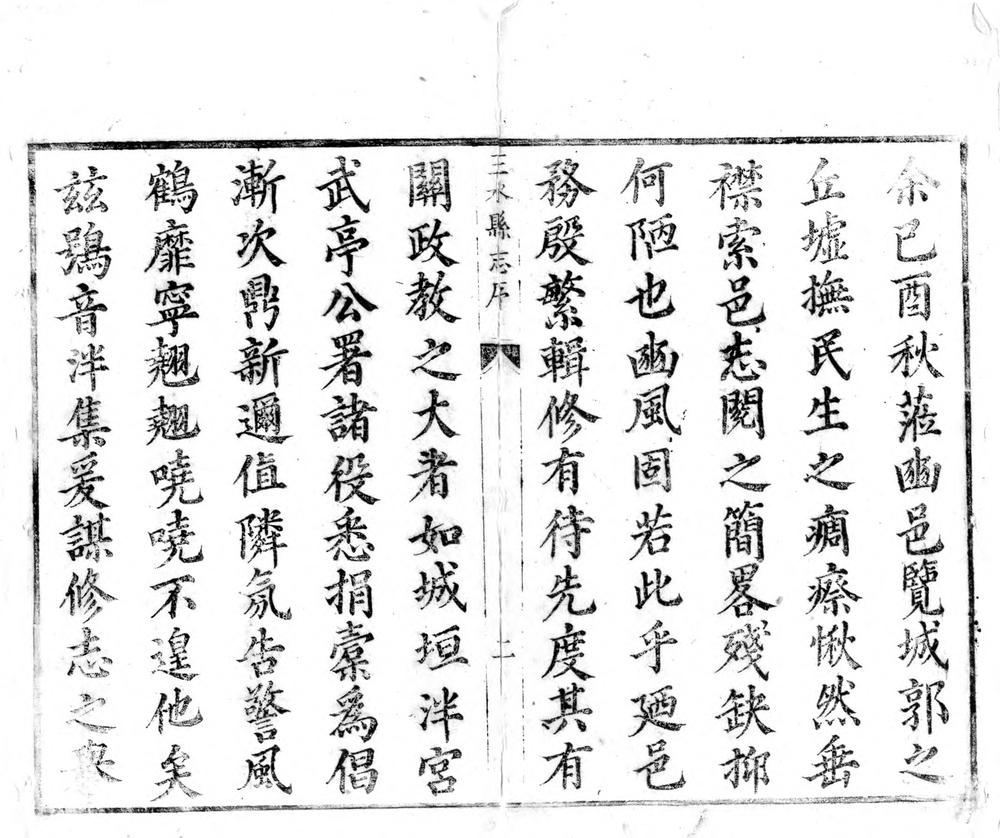 余己酉秋蒞豳邑覽城郭之
丘墟撫民生之痌瘵愀然垂
襟索邑志閱之簡畧殘缺抑
何陋也豳風固若此乎廼邑
務殷繁輯修有待先度其有
三水縣志序
二
關政教之大者如城垣泮宮
武亭公署諸役悉捐槖爲倡
漸次鼎新邇值隣氛告警風
鶴靡寧翹翹嘵嘵不遑他矣
茲鴞音泮集爰謀修志之舉